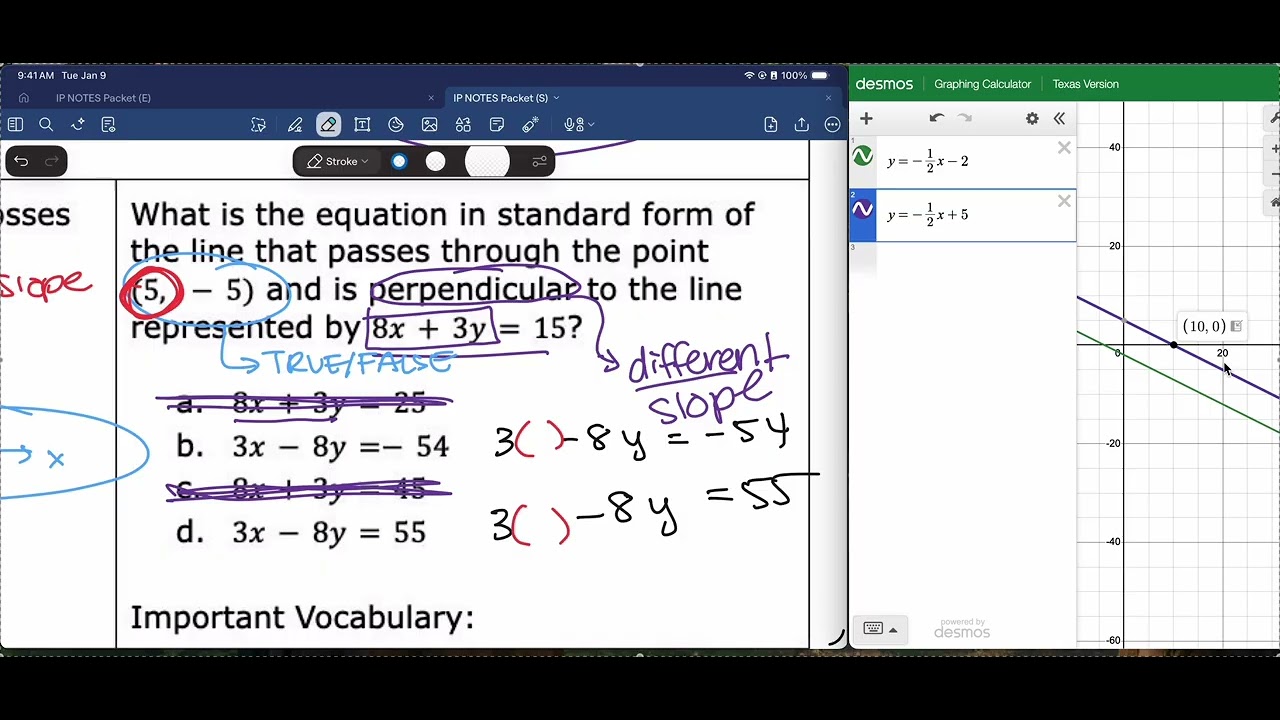 9:41 AM Tue Jan 9
100%
IP NOTES Packet (E)
IP NOTES Packet (S)
Stroke
slope
x
What is the equation in standard form of
the line that passes through the point
(5, − 5) and is perpendicular to the line
represented by 8x + 3y = 15?
TRUE/FALSE
different
slope
a. 8x + 3y = 25
b. 3x − 8y =− 54
3( )-8y = -54
c. 8x + 3y = 45
d. 3x − 8y = 55
3( )-8y = 55
Important Vocabulary:
desmos
Graphing Calculator
Texas Version
1
y = −1/2x − 2
2
y = −1/2x + 5
3
powered by
desmos
40
20
(10, 0)
0
20
-20
-40
-60